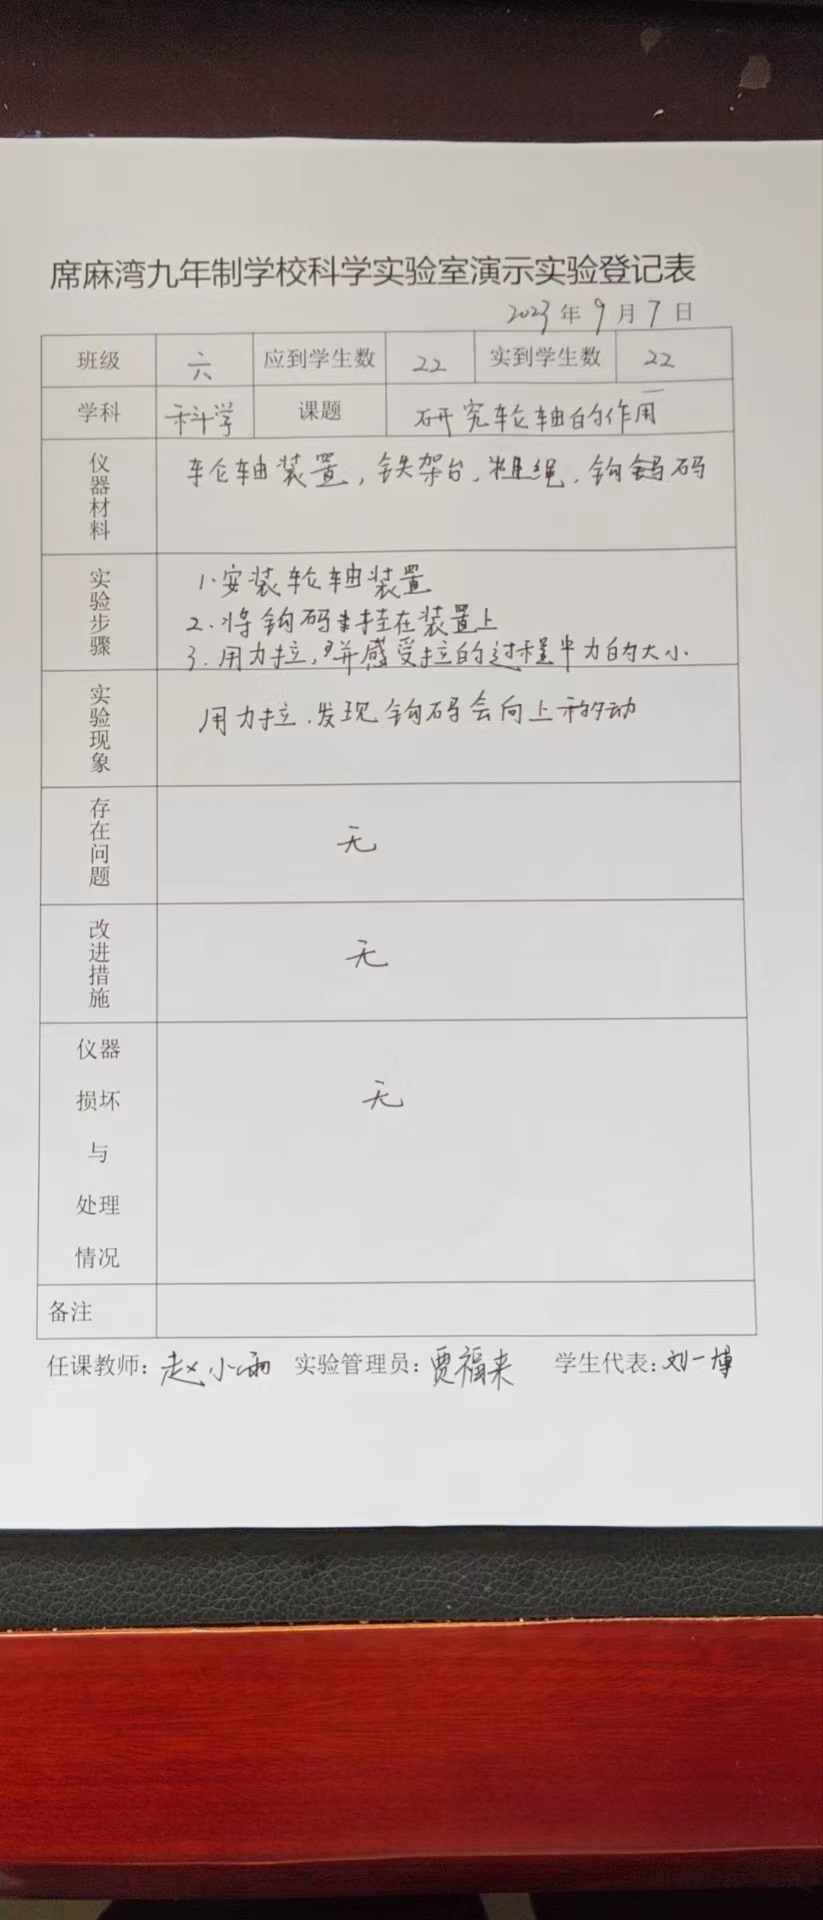 席麻湾九年制学校科学实验室演示实验登记表
2023年9月7日
班级 六 应到学生数 22 实到学生数 22
学科 科学 课题 研究轮轴的作用
仪器材料 轮轴装置,铁架台,粗绳,钩码
实验步骤 1.安装轮轴装置
2.将钩码挂在装置上
3.用力拉,并感受拉的过程中力的大小
实验现象 用力拉.发现钩码会向上移动
存在问题 无
改进措施 无
仪器
损坏 无
与
处理
情况
备注
任课教师:赵小雨 实验管理员:贾福来 学生代表:刘一博